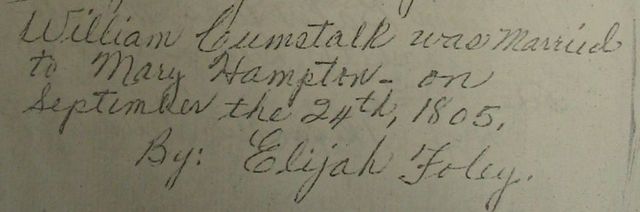 William Cumstalk was Married
to Mary Hampton - on
September the 24th, 1805.
By: Elijah Foley.